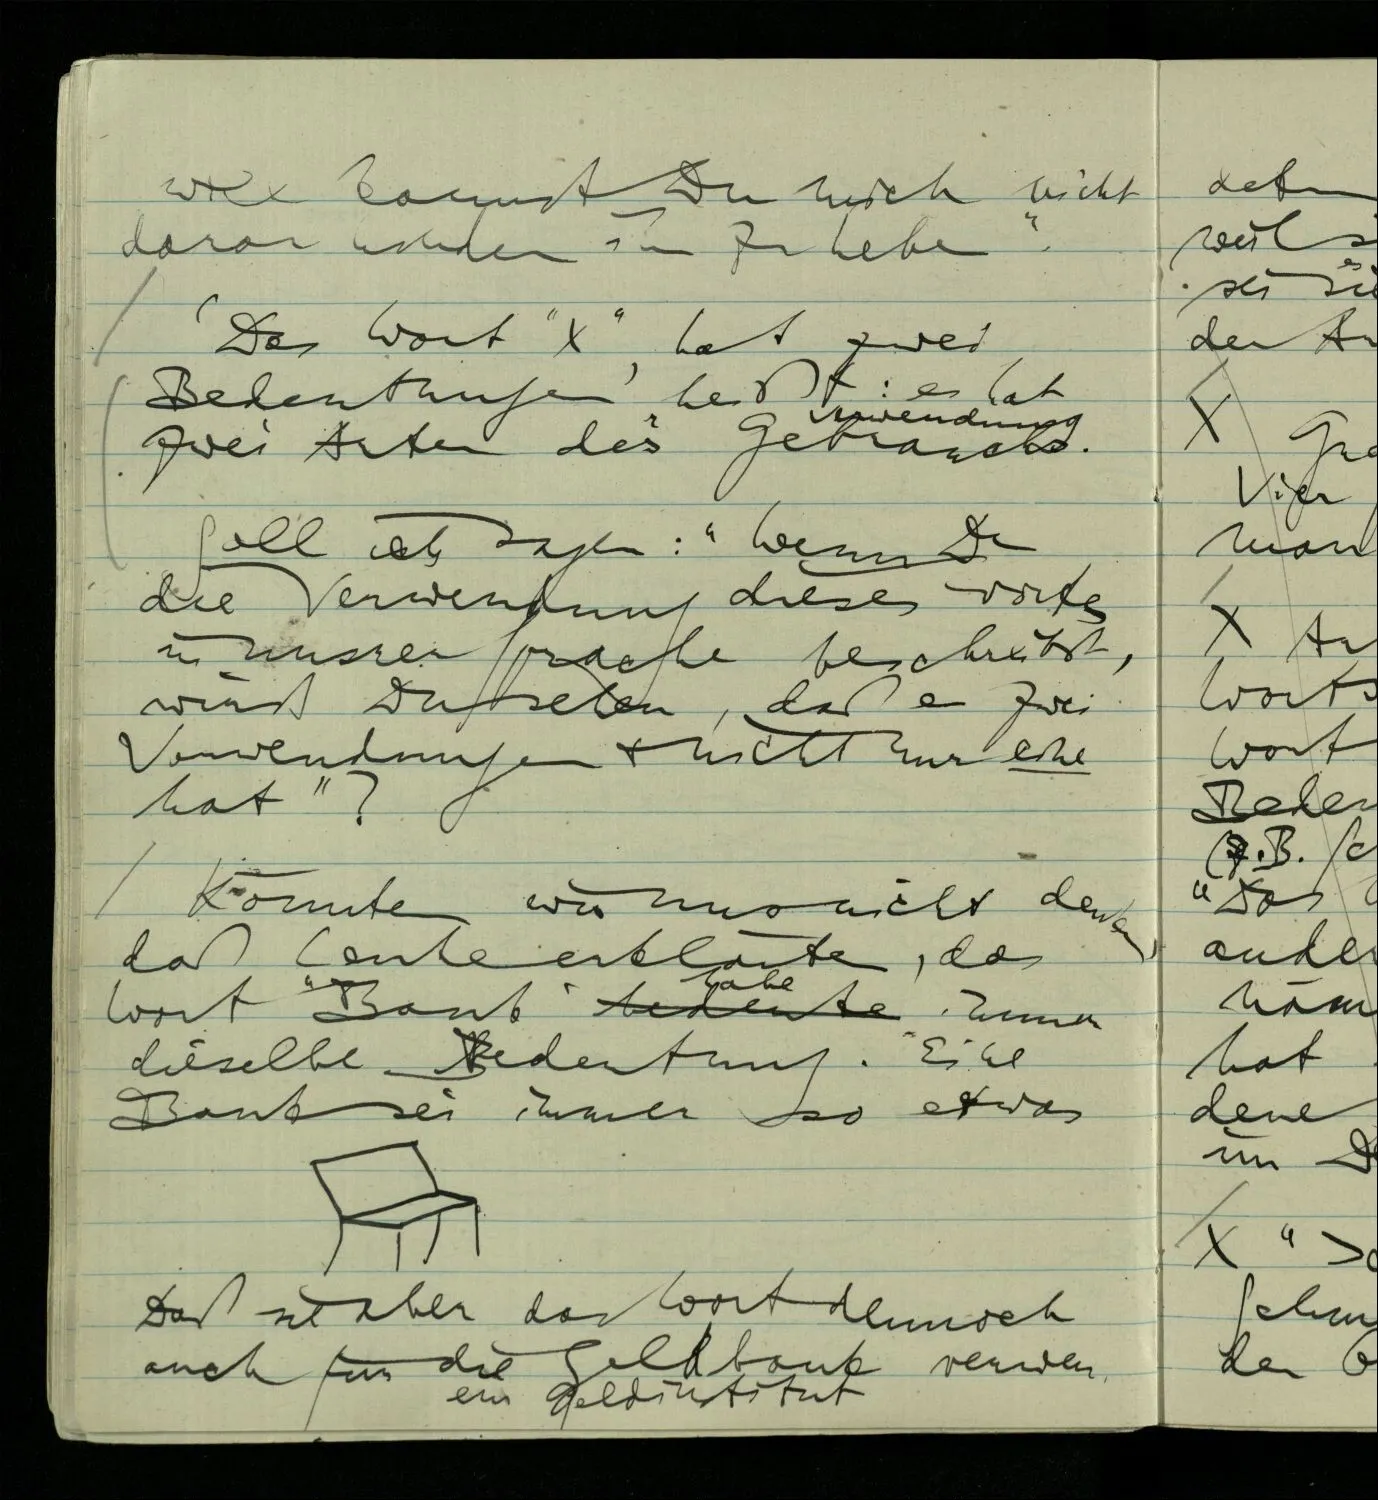 wie kannst Du mich nicht
daran hindern ihn zu heben".
'Das Wort "X" hat zwei
Bedeutungen' heißt: es hat
zwei Arten des Gebrauchs.
Verwendung
Soll ich sagen: "wenn Du
die Verwendung dieses Worts
in unsrer Sprache beschreibst,
wirst Du sehen, daß es zwei
Verwendungen & nicht nur eine
hat"?
Könnten wir uns nicht denken,
daß Leute erklärten, das
habe
Wort "Bank" bedeute immer
dieselbe Bedeutung. Eine
Bank sei immer so etwas
Daß sie aber das Wort dennoch
auch für die Geldbank verwen
ein Geldinstitut
weil
der
X
Vier
man
X
Worts
Wort
(z.B.
"Das
hat
im
X
der